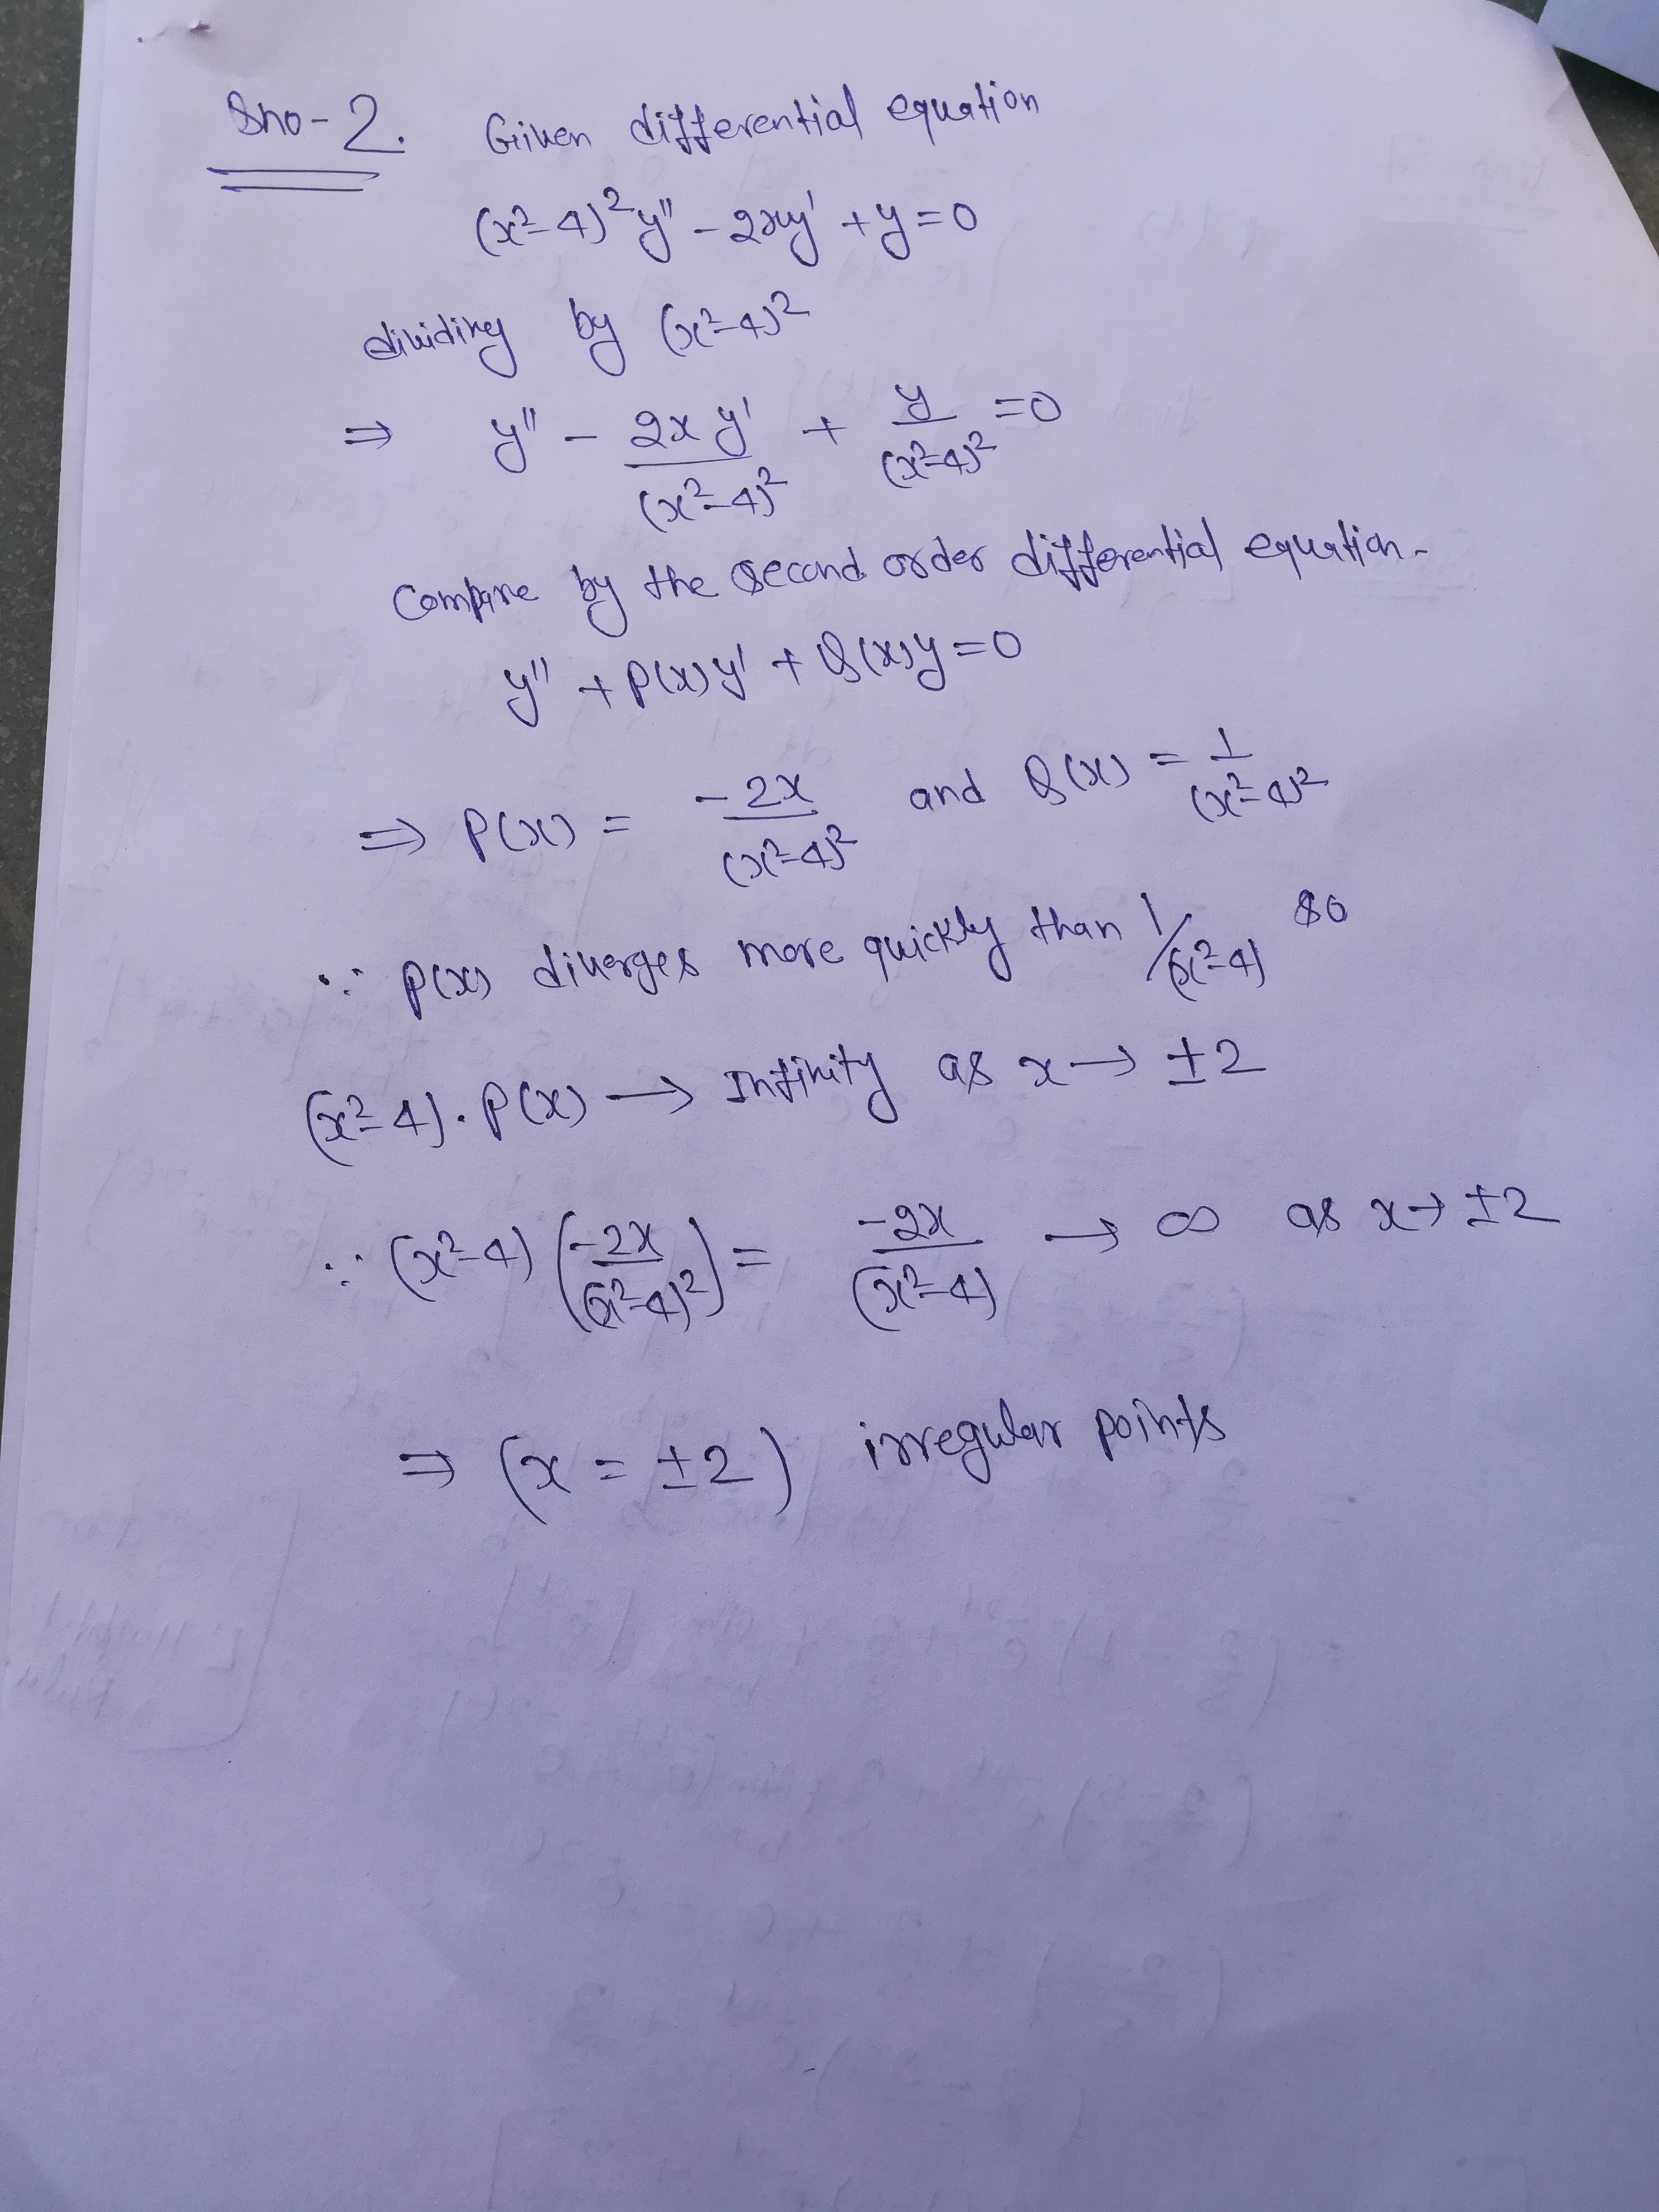 Sno-2. Given differential equation
(x²-4)²y'' - 2xy' + y = 0
dividing by (x²-4)²
⇒ y'' - 2xy'/(x²-4)² + y/(x²-4)² = 0
Compare by the second order differential equation-
y'' + P(x)y' + Q(x)y = 0
⇒ P(x) = -2x/(x²-4)² and Q(x) = 1/(x²-4)²
∵ P(x) diverges more quickly than 1/(x²-4) so
(x²-4).P(x) → Infinity as x → ±2
∵ (x²-4)(-2x/(x²-4)²) = -2x/(x²-4) → ∞ as x→ ±2
⇒ (x = ±2) irregular points